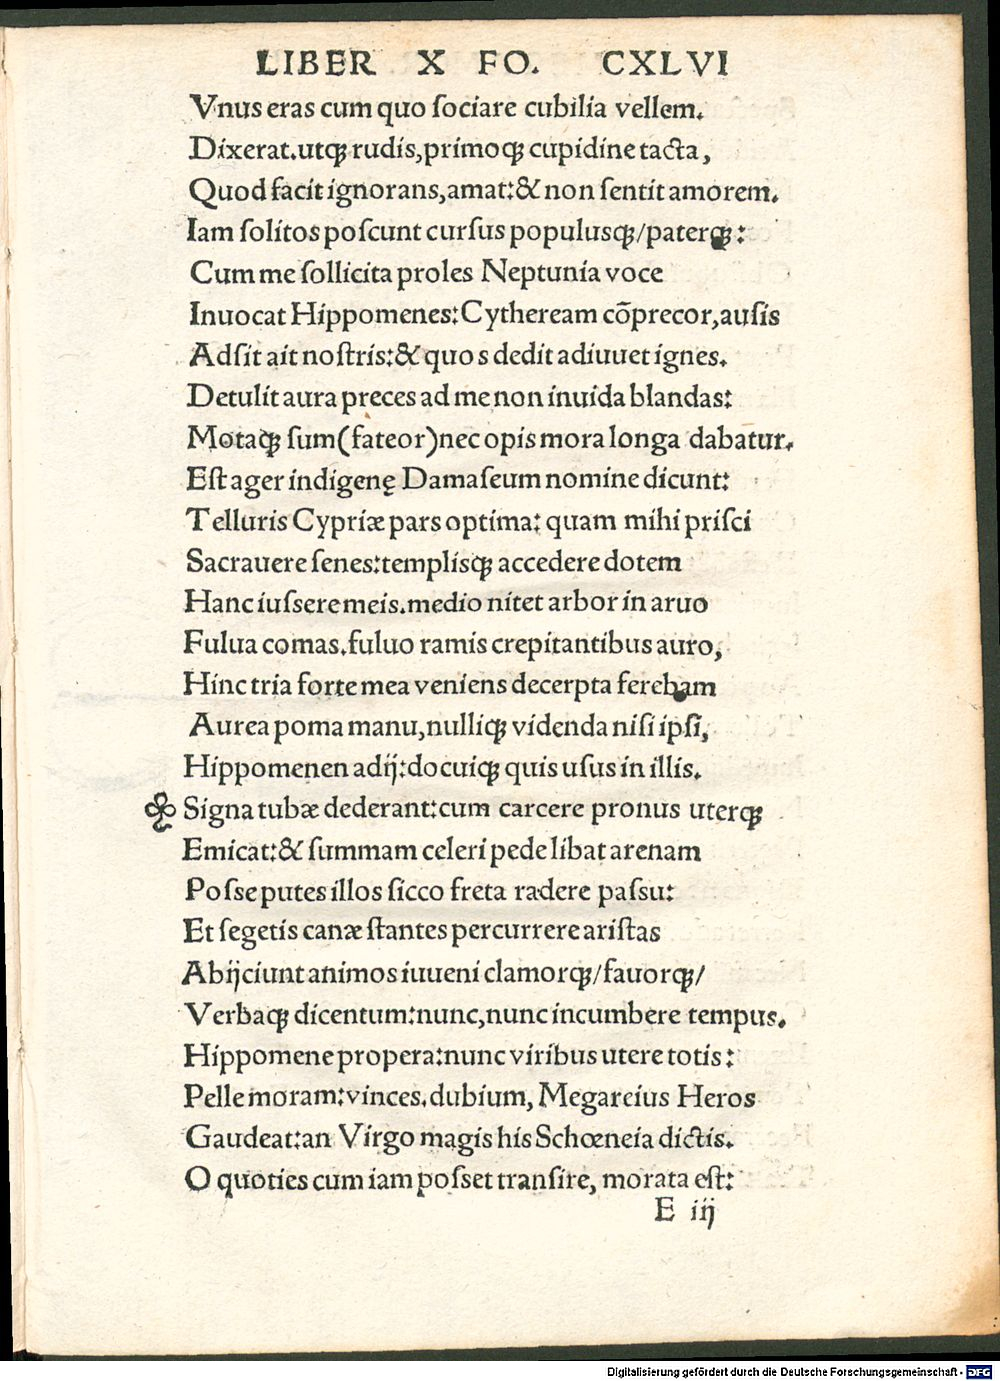 LIBER X FO. CXLVI
Vnus eras cum quo ſociare cubilia vellem.
Dixerat.utqꝫ rudis,primoqꝫ cupidine tacta,
Quod facit ignorans,amat:& non ſentit amorem.
Iam ſolitos poſcunt curſus populusqꝫ/paterqꝫ:
Cum me ſollicita proles Neptunia voce
Inuocat Hippomenes:Cytheream cōprecor,auſis
Adſit ait noſtris:& quos dedit adiuuet ignes.
Detulit aura preces ad me non inuida blandas:
Motaqꝫ ſum(fateor)nec opis mora longa dabatur.
Eſt ager indigenę Damaſeum nomine dicunt:
Telluris Cypriæ pars optima: quam mihi priſci
Sacrauere ſenes:templisqꝫ accedere dotem
Hanc iuſsere meis.medio nitet arbor in aruo
Fulua comas.fuluo ramis crepitantibus auro,
Hinc tria forte mea veniens decerpta ferebam
Aurea poma manu,nulliqꝫ videnda niſi ipſi,
Hippomenen adij:docuiqꝫ quis uſus in illis.
Signa tubæ dederant:cum carcere pronus uterqꝫ
Emicat:& ſummam celeri pede libat arenam
Poſse putes illos ſicco freta radere paſsu:
Et ſegetis canæ ſtantes percurrere ariſtas
Abijciunt animos iuueni clamorqꝫ/fauorqꝫ/
Verbaqꝫ dicentum:nunc,nunc incumbere tempus.
Hippomene propera:nunc viribus utere totis:
Pelle moram:vinces.dubium, Megareius Heros
Gaudeat:an Virgo magis his Schœneia dictis.
O quoties cum iam poſset tranſire, morata eſt:
E iij
Digitalisierung gefördert durch die Deutsche Forschungsgemeinschaft - DFG